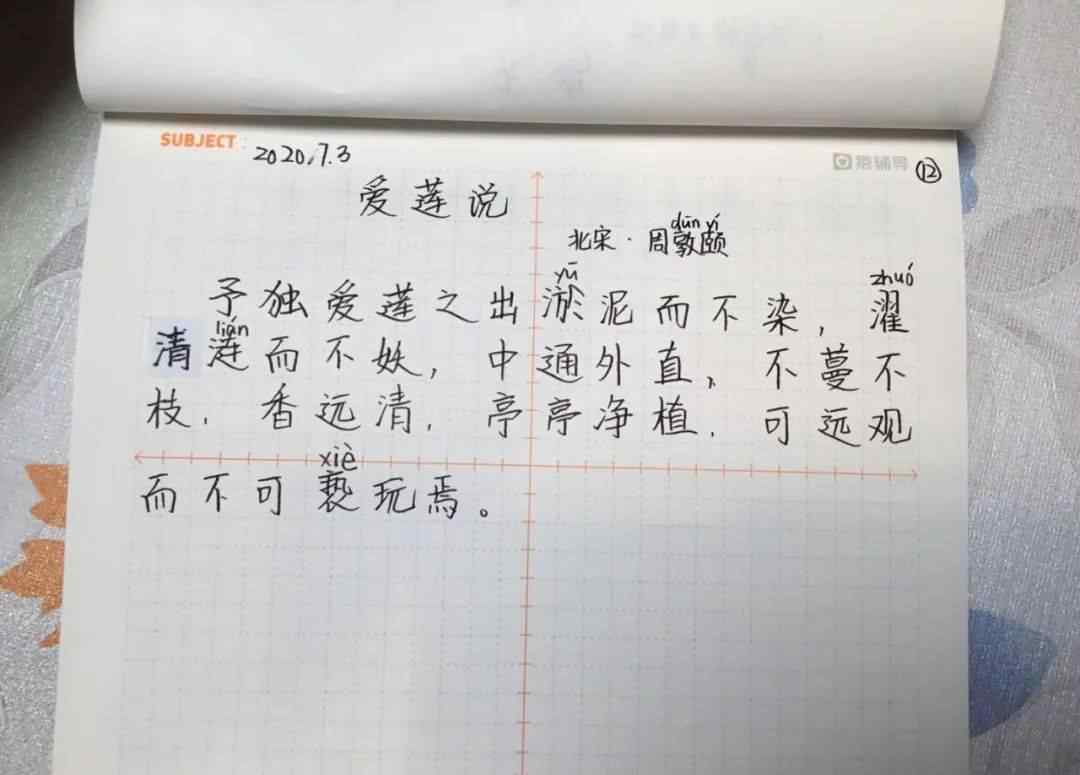 SUBJECT: 2020.7.3
猿辅导 ⑫
爱莲说
dūn yí
北宋·周敦颐
yū zhuó
予独爱莲之出淤泥而不染，濯
lián
清涟而不妖，中通外直，不蔓不
枝，香远清，亭亭净植，可远观
xiè
而不可亵玩焉。